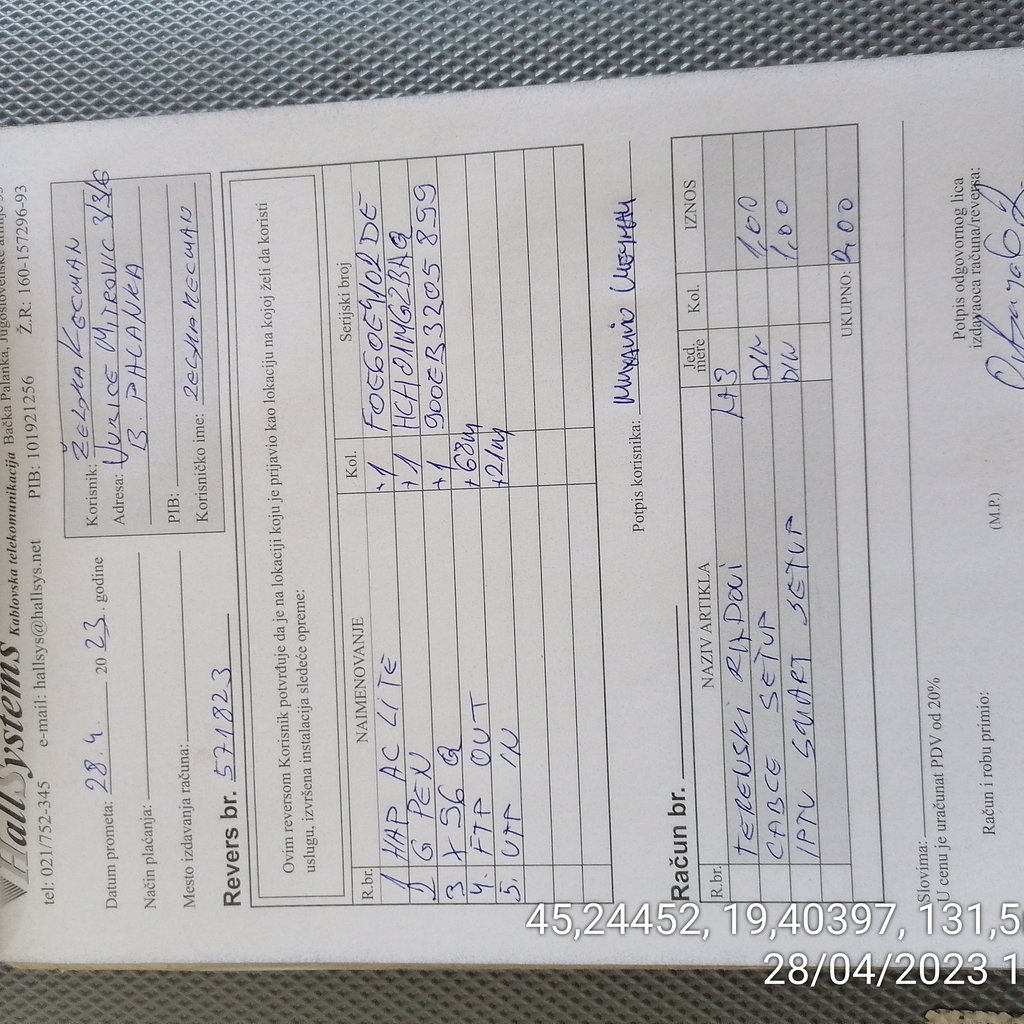 HallSystems Kablovska telekomunikacija Bačka Palanka, Jugoslovenske armije
tel: 021/752-345 e-mail: hallsys@hallsys.net PIB: 101921256 Ž.R: 160-157296-93
Datum prometa: 28.4. 2023. godine
Način plaćanja:
Mesto izdavanja računa:
Korisnik: ŽELJKA KECMAN
Adresa: VURICE MITROVIC 3/3/6
B. PALANKA
PIB:
Korisničko ime: ZELJKAKECMAN
Revers br. 571823
Ovim reversom Korisnik potvrđuje da je na lokaciji koju je prijavio kao lokaciju na kojoj želi da koristi
uslugu, izvršena instalacija sledeće opreme:
R.br. NAIMENOVANJE Kol. Serijski broj
1 HAP AC LITE +1 F0E60E4102DE
2 G PEN +1 HCH01MG2BAQ
3 X S6 Q +1 900EB3205899
4. FTP OUT +68m
5. UTP IN +21m
Potpis korisnika:
Račun br.
R.br. NAZIV ARTIKLA Jed. mere Kol. IZNOS
TERENSKI RADOVI
CABLE SETUP DIN 1,00
IPTV SMART SETUP DIN 1,00
UKUPNO: 2,00
Slovima:
U cenu je uračunat PDV od 20%
Račun i robu primio:
(M.P.)
Potpis odgovornog lica
izdavaoca računa/reversa:
45,24452, 19,40397, 131,5
28/04/2023 1